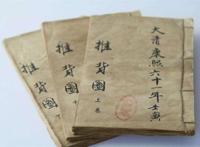 大清康熙六十一年壬寅
推背圖 上卷
推背圖
推背圖